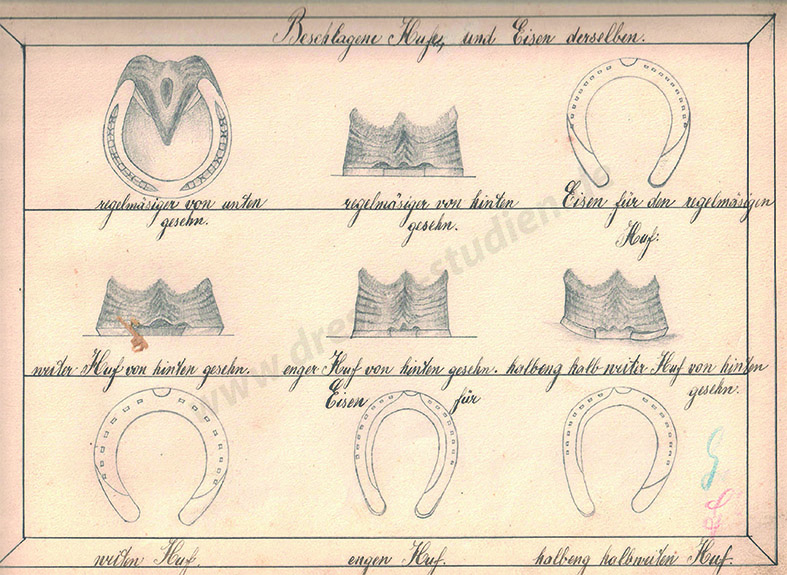 Beschlagene Hufe, und Eisen derselben.
regelmäsiger von unten
gesehn.
regelmäsiger von hinten
gesehn.
Eisen für den regelmäsigen
Huf:
weiter Huf von hinten gesehn.
enger Huf von hinten gesehn.
halbeng halb weiter Huf von hinten
gesehn.
Eisen für
weiten Huf.
engen Huf.
halbeng halbweiten Huf.
www.dressur-studien.de